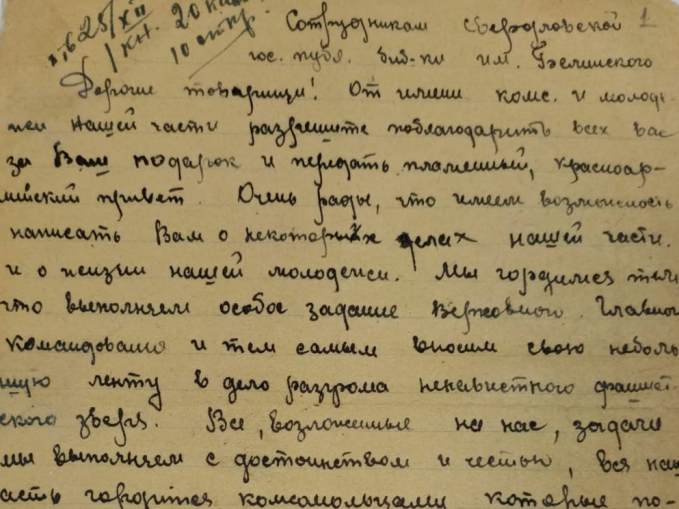 1
625/XII
1 кн. 20
10 откр.
Сотрудникам свердловской
гос. публ. биб-ки им. Белинского
Дорогие товарищи! От имени комс. и молоде
жи нашей части разрешите поблагодарить всех вас
за Ваш подарок и передать пламенный, красноар-
мейский привет. Очень рады, что имеем возможность
написать Вам о некоторых делах нашей части
и о жизни нашей молодежи. Мы гордимся тем
что выполняем особое задание Верховного Главного
командования и тем самым вносим свою неболь
шую лепту в дело разгрома ненавистного фашист
ского зверя. Все, возложенные на нас, задачи
мы выполняем с достоинством и честью, вся наш
асть гордится комсомольцами которые по-